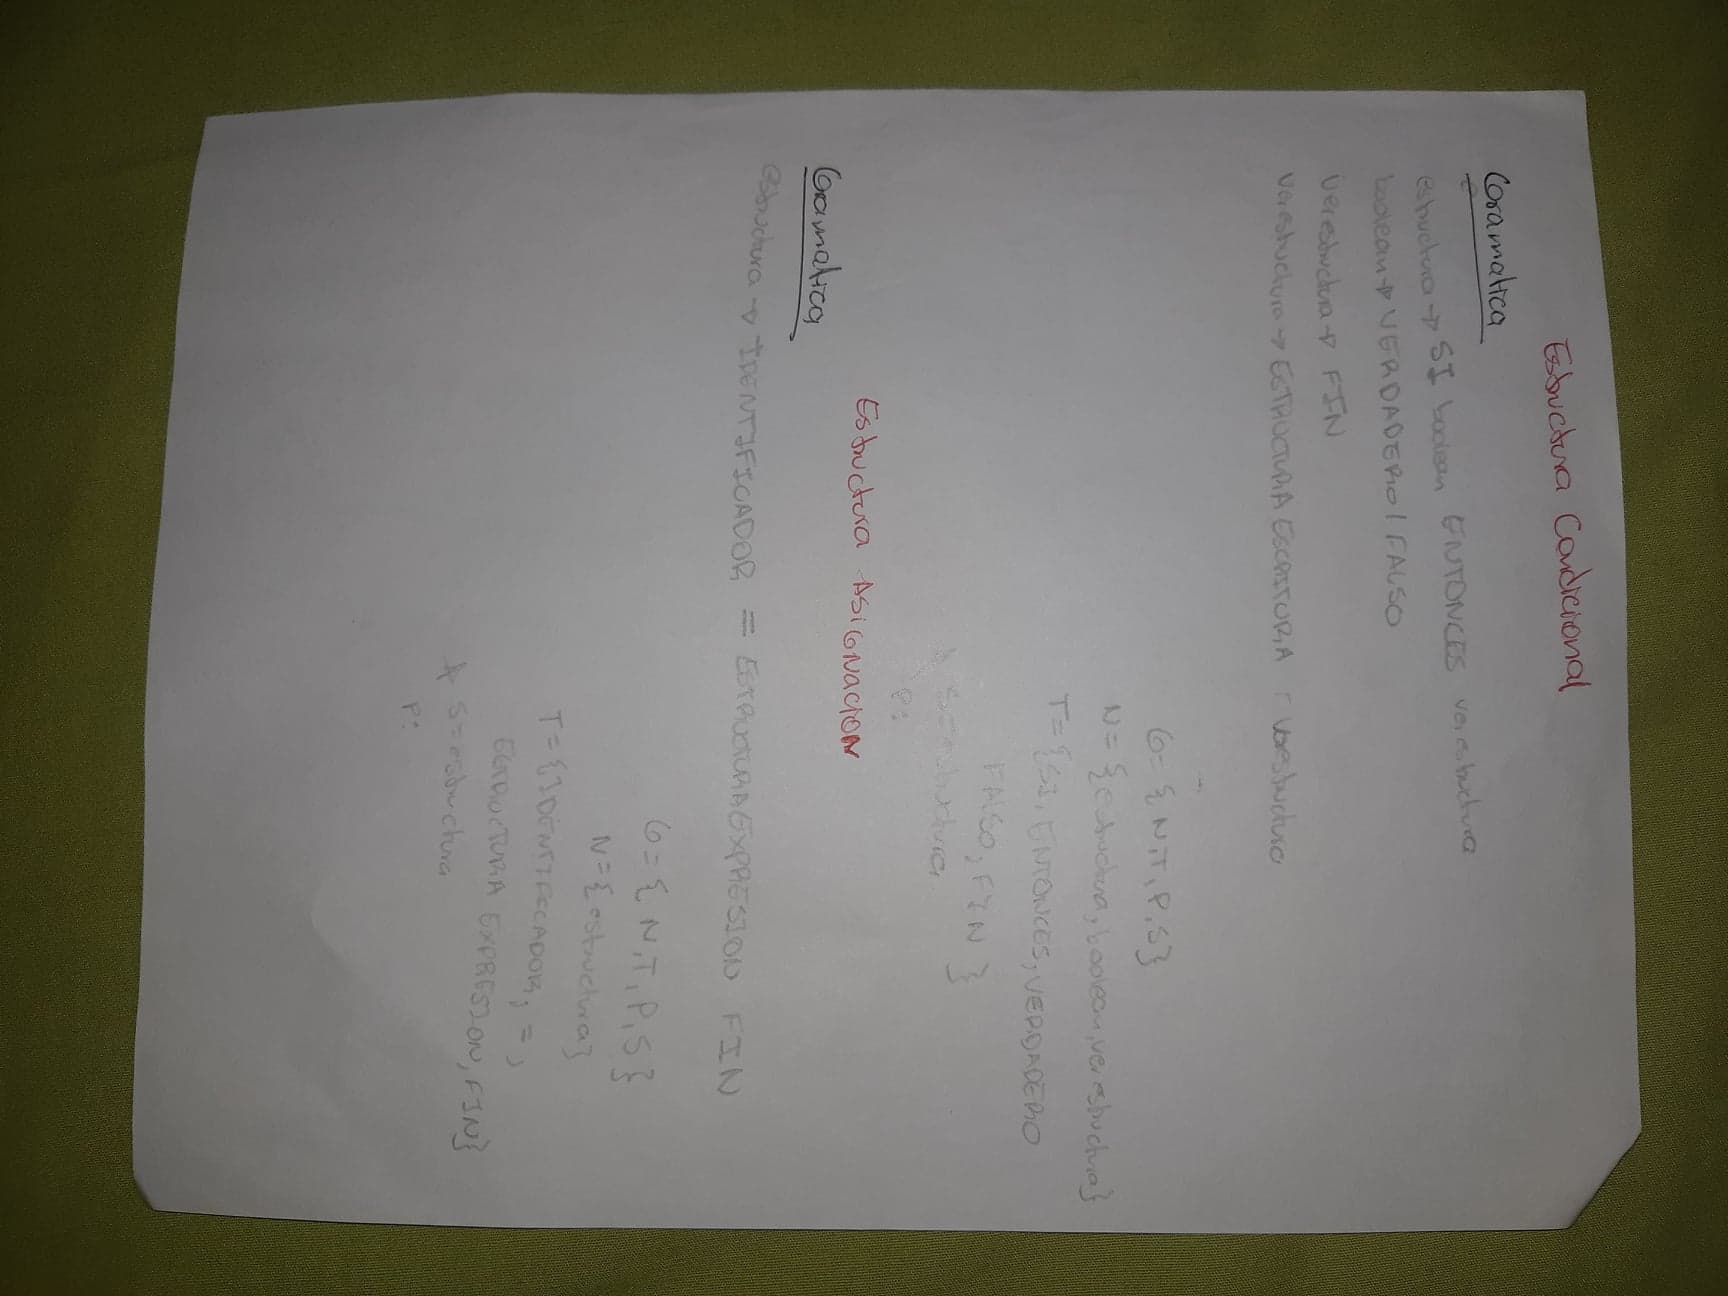 Estructura Condicional
Gramatica
estructura → SI boolean ENTONCES verestructura
boolean → VERDADERO | FALSO
verestructura → FIN
verestructura → ESTRUCTURA ESCRITURA verestructura
G = { N, T, P, S }
N = { estructura, boolean, verestructura }
T = { SI, ENTONCES, VERDADERO
FALSO, FIN }
S = estructura
P:
Estructura ASIGNACION
Gramatica
estructura → IDENTIFICADOR = ESTRUCTURA EXPRESION FIN
G = { N, T, P, S }
N = { estructura }
T = { IDENTIFICADOR, =,
ESTRUCTURA EXPRESION, FIN }
* S = estructura
P: